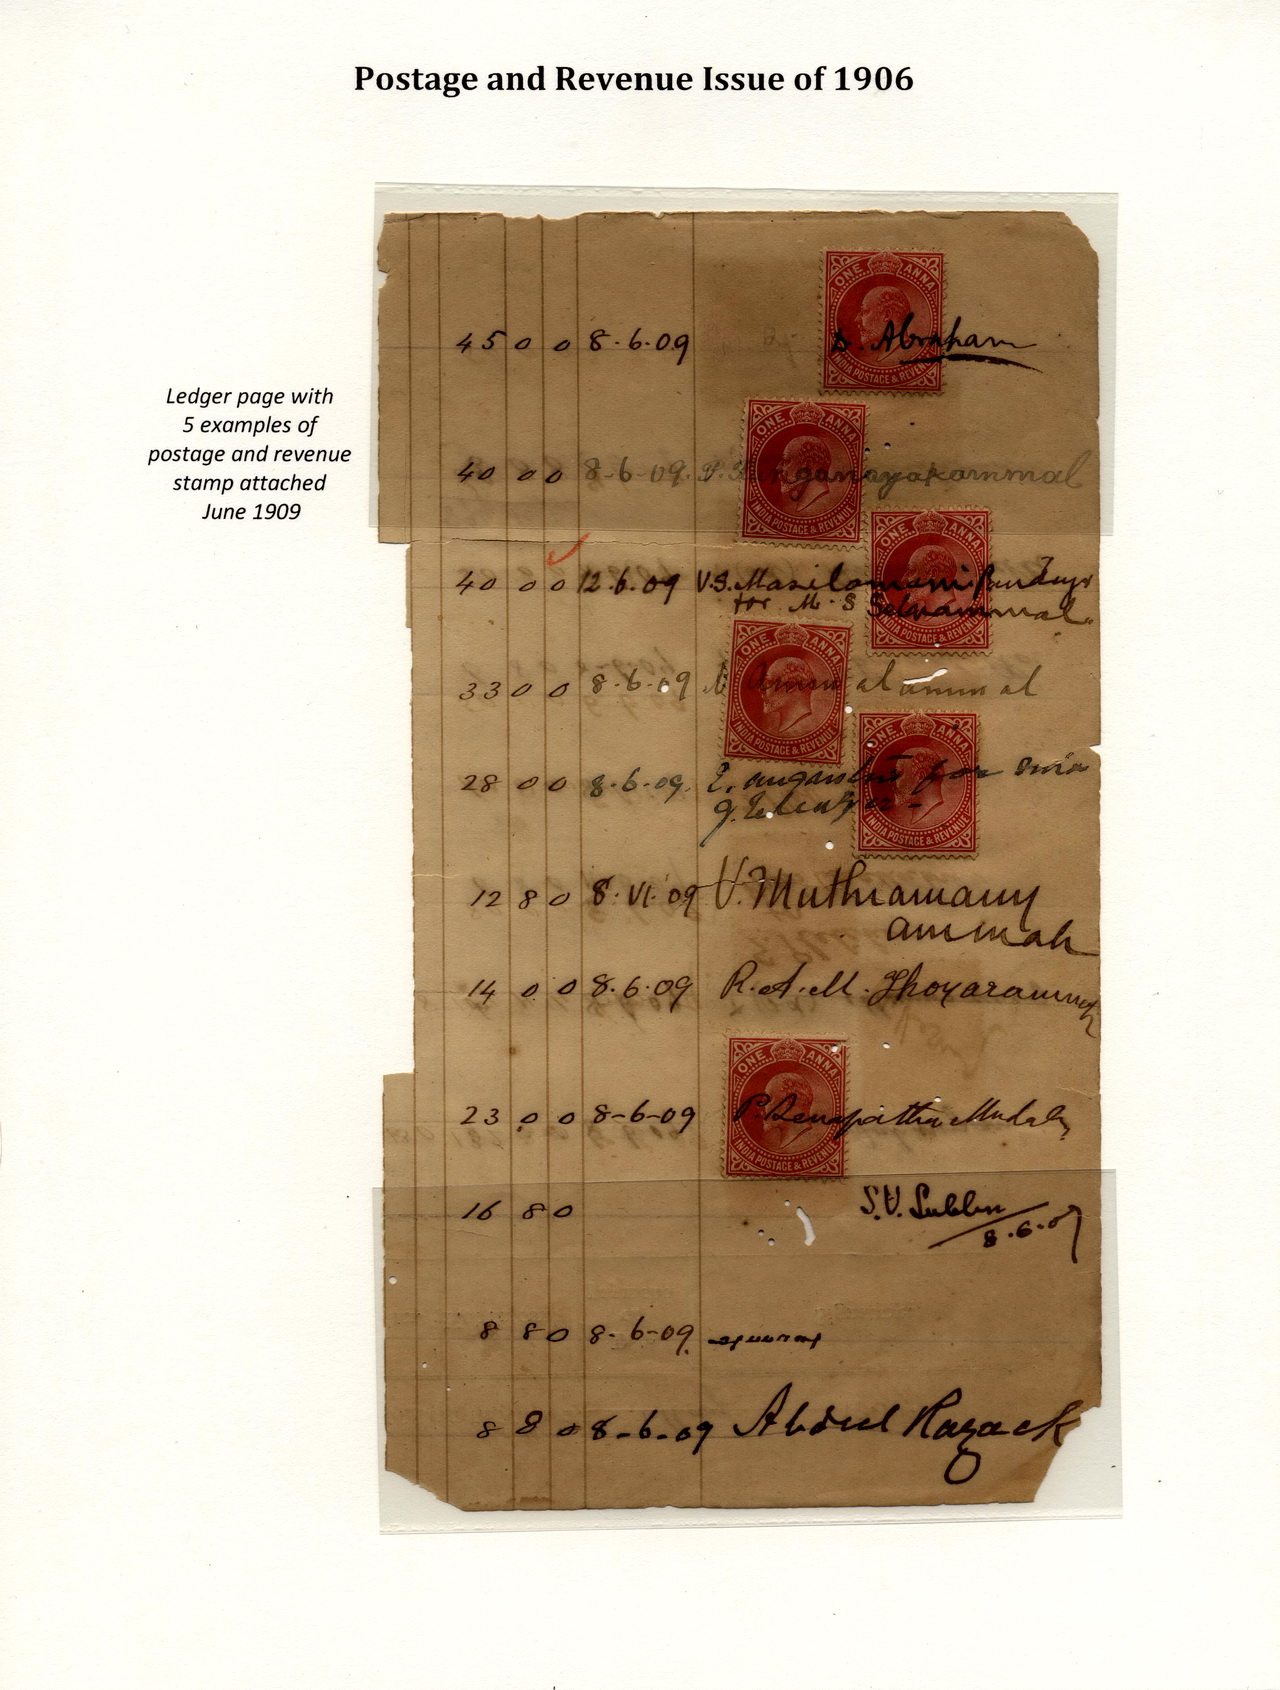 Postage and Revenue Issue of 1906
Ledger page with
5 examples of
postage and revenue
stamp attached
June 1909
ONE ANNA
INDIA POSTAGE & REVENUE
45 0 0 8-6-09 D. Abraham
ONE ANNA
INDIA POSTAGE & REVENUE
40 0 0 8-6-09.
ONE ANNA
INDIA POSTAGE & REVENUE
40 0 0 12.6.09 V.S. Masilamani
for M. S Selvammal
ONE ANNA
INDIA POSTAGE & REVENUE
33 0 0 8-6-09
ONE ANNA
INDIA POSTAGE & REVENUE
28 0 0 8-6-09. E. for
12 8 0 8. VI. 09 V.
14 0 0 8.6.09 R. A. M.
ONE ANNA
INDIA POSTAGE & REVENUE
23 0 0 8-6-09 P.
16 8 0 S.V.
8.6.09
8 8 0 8-6-09.
8 8 0 8-6-09 Abdul Razack